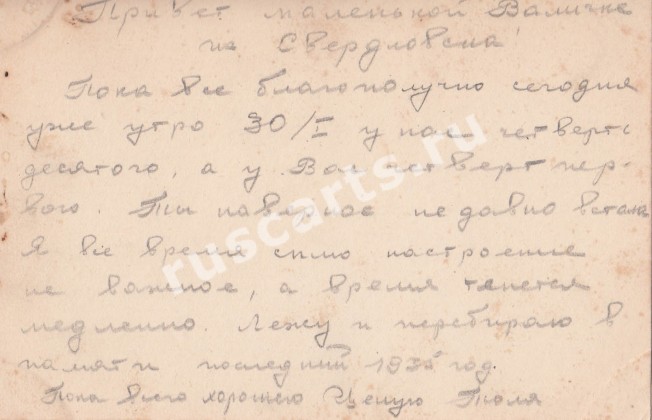 Привет маленькой Валичке
из Свердловска
Пока все благополучно сегодня
уже утро 30/I у нас четверть
десятого, а у Вас четверт пер-
вого. Ты наверное недавно встала
Я все время сплю настроение
не важное, а время тянется
медленно. Лежу и перебираю в
памяти последний год.
Пока всего хорошего Целую Толя
ruscarts.ru